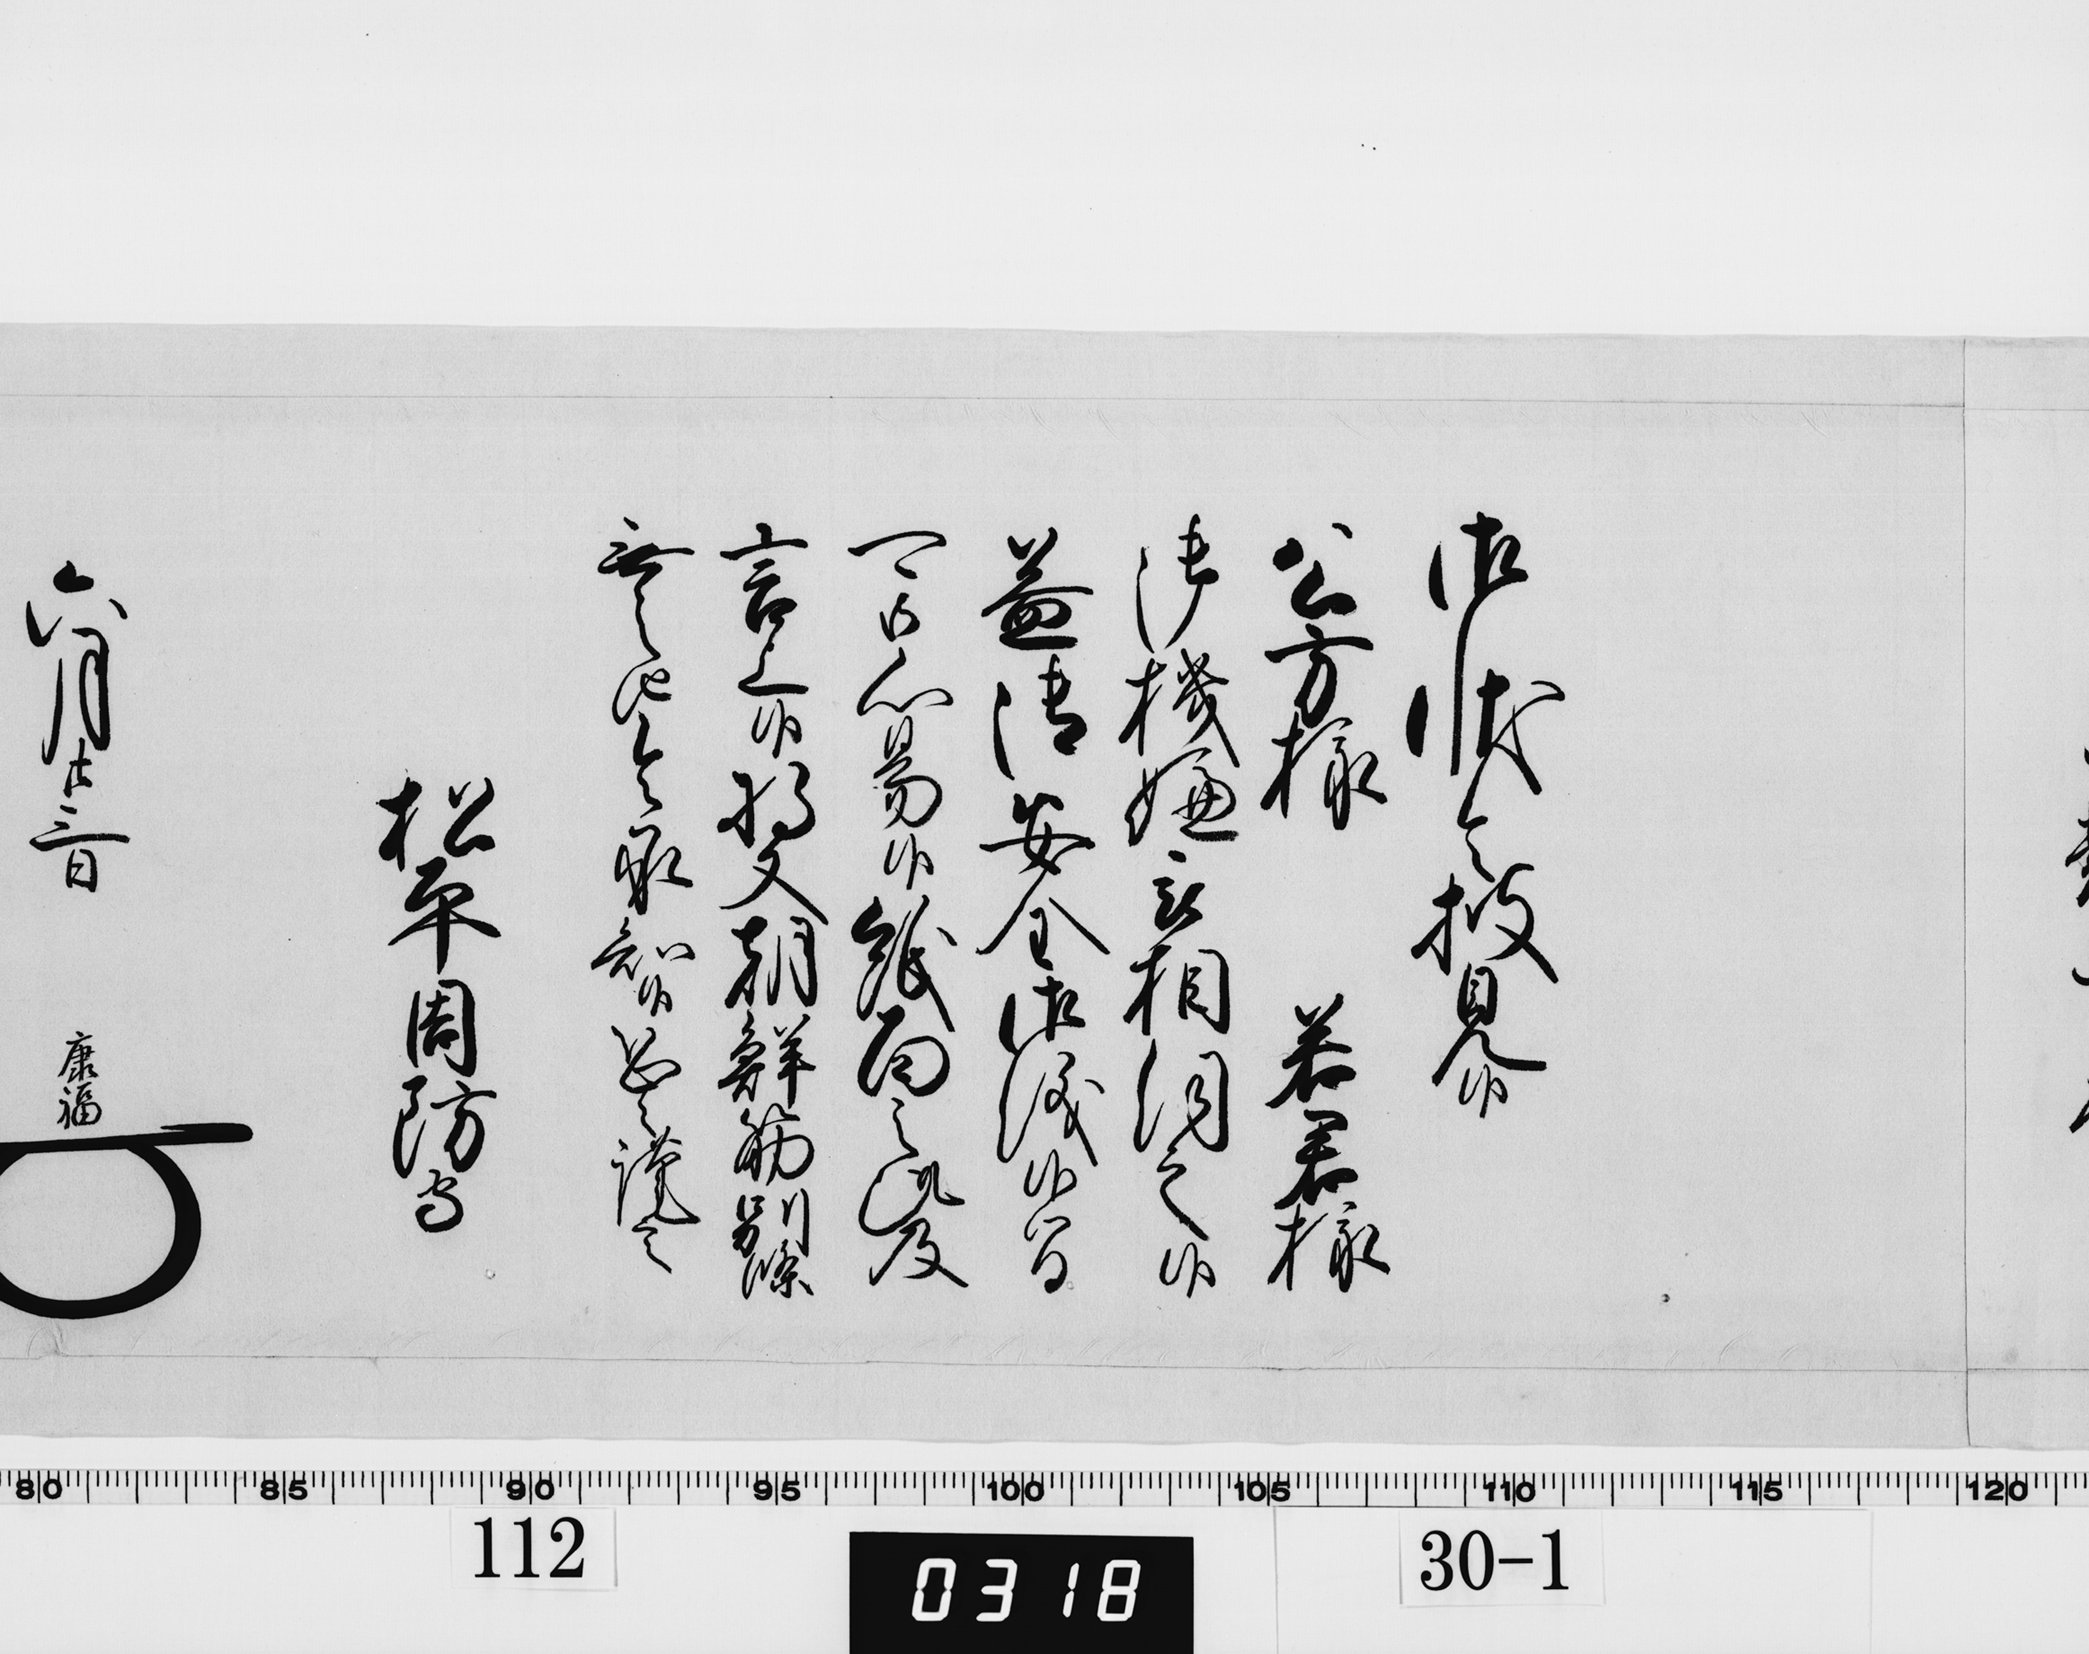 御状令披見候
公方様　若君様
御機嫌之御様子相伺之候
益御安全御儀候間
可御心易候紙面之趣及
言上候将又朝鮮筋別條
無之由令承知候恐々謹言
松平周防守
六月廿三日
康福
112
0318
30-1
80 85 90 95 100 105 110 115 120